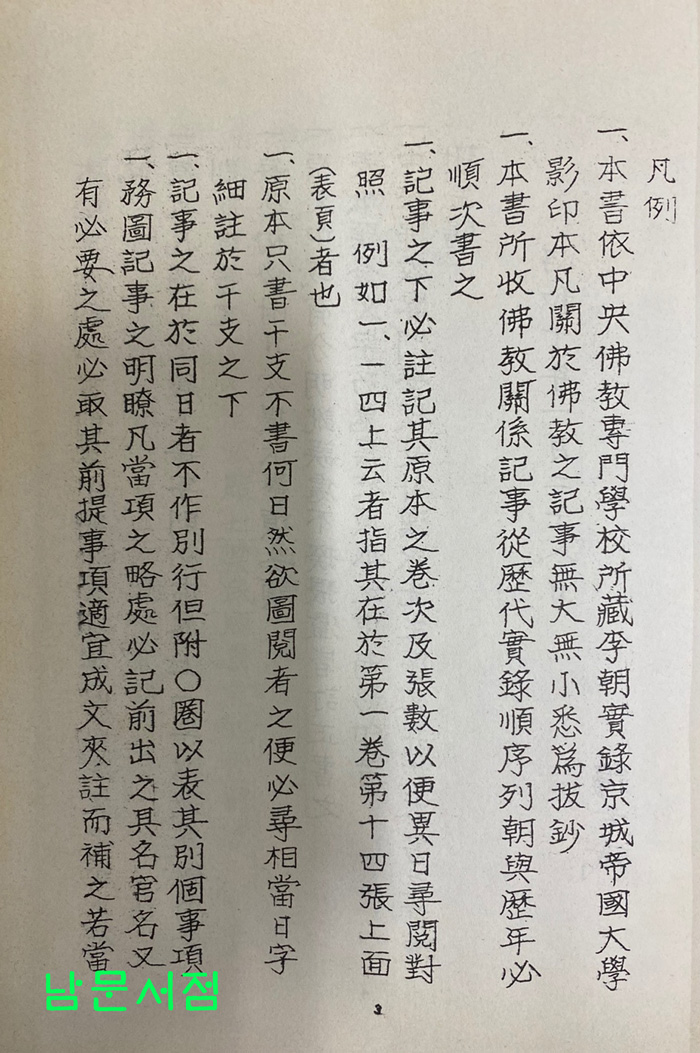 凡例
一、本書依中央佛敎專門學校所藏李朝實錄京城帝國大學
影印本凡關於佛敎之記事無大無小悉爲拔鈔
一、本書所收佛敎關係記事從歷代實錄順序列朝與歷年必
順次書之
一、記事之下必註記其原本之卷次及張數以便異日尋閱對
照 例如一、一四上云者指其在於第一卷第十四張上面
(表頁)者也
一、原本只書干支不書何日然欲圖閱者之便必尋相當日字
細註於干支之下
一、記事之在於同日者不作別行但附○圈以表其別個事項
一、務圖記事之明瞭凡當項之略處必記前出之具名官名又
有必要之處必取其前提事項適宜成文夾註而補之若當
3
남문서점